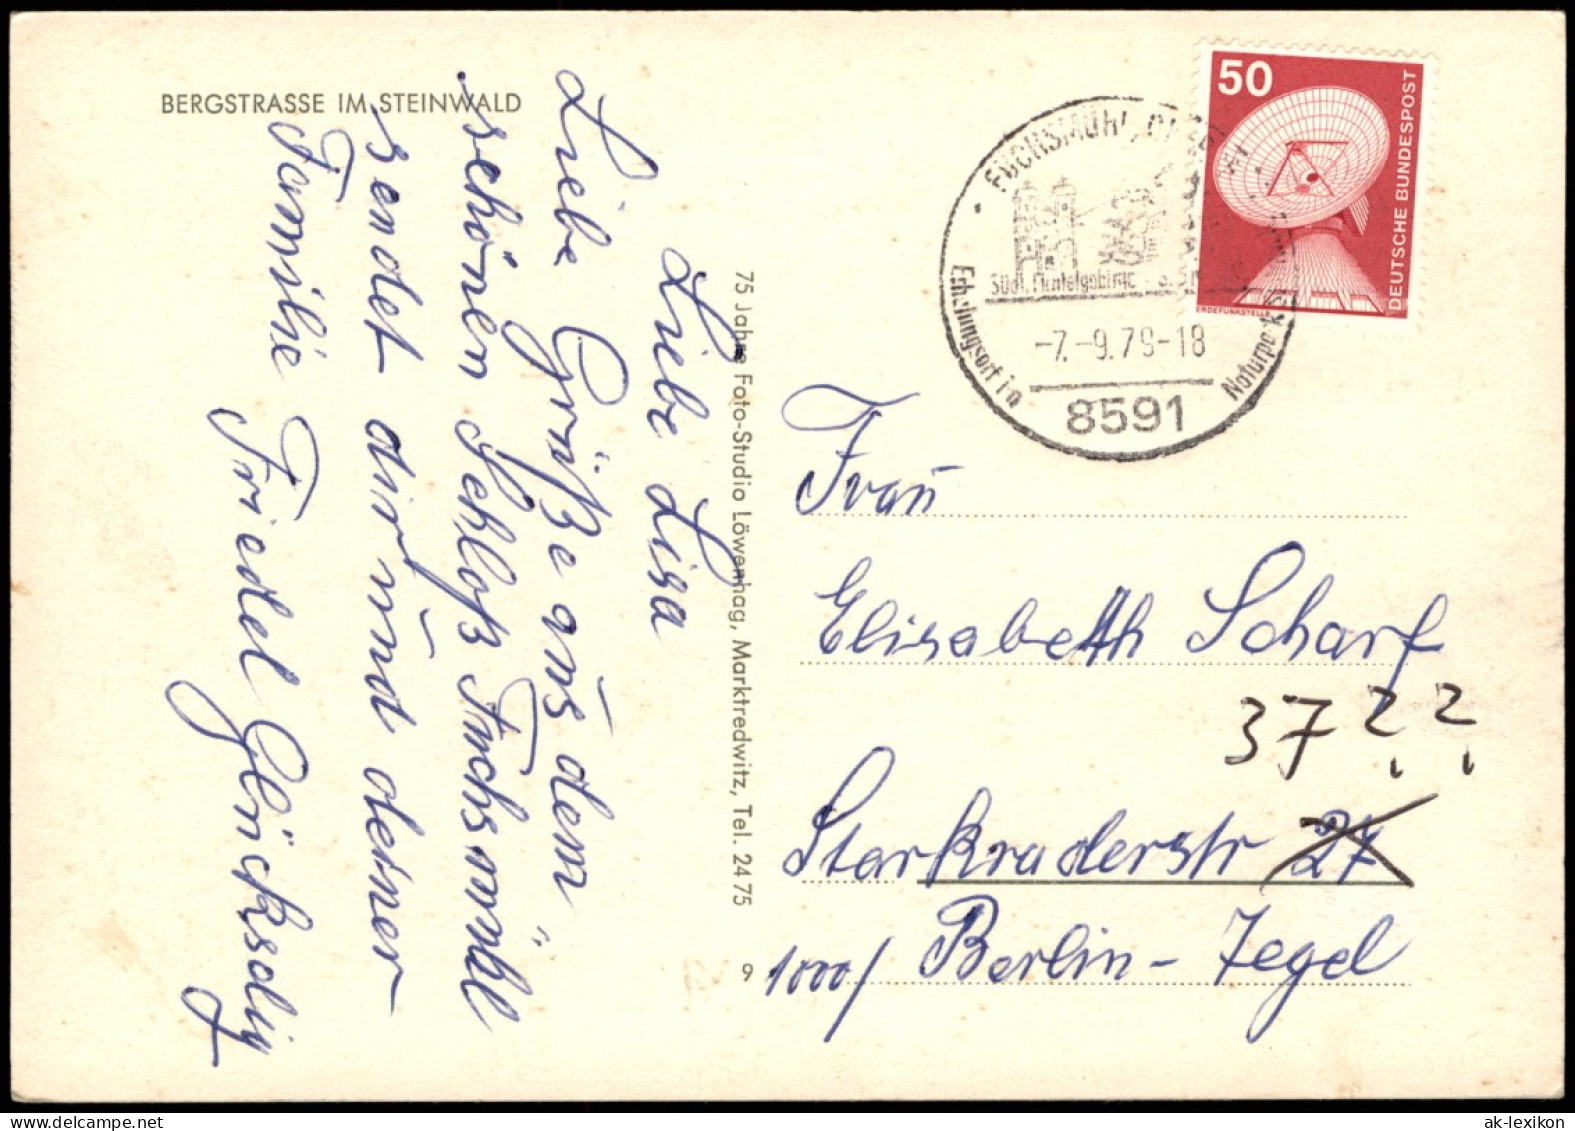 BERGSTRASSE IM STEINWALD
Liebe Lisa
Liebe Grüße aus dem
schönen Schloß Fuchsmühl
sendet dir und deiner
Familie Friedel Glückselig
75 Jahre Foto-Studio Löwenhag, Marktredwitz, Tel. 2475
9
50
DEUTSCHE BUNDESPOST
ERDEFUNKSTELLE
FUCHSMÜHL
Südl. Fichtelgebirge
Erholungsort im
Naturpark
-7.-9.79-18
8591
Frau
Elisabeth Scharf
37 ? ?
Starkraderstr 27
1000/ Berlin-Tegel
ak-lexikon.com